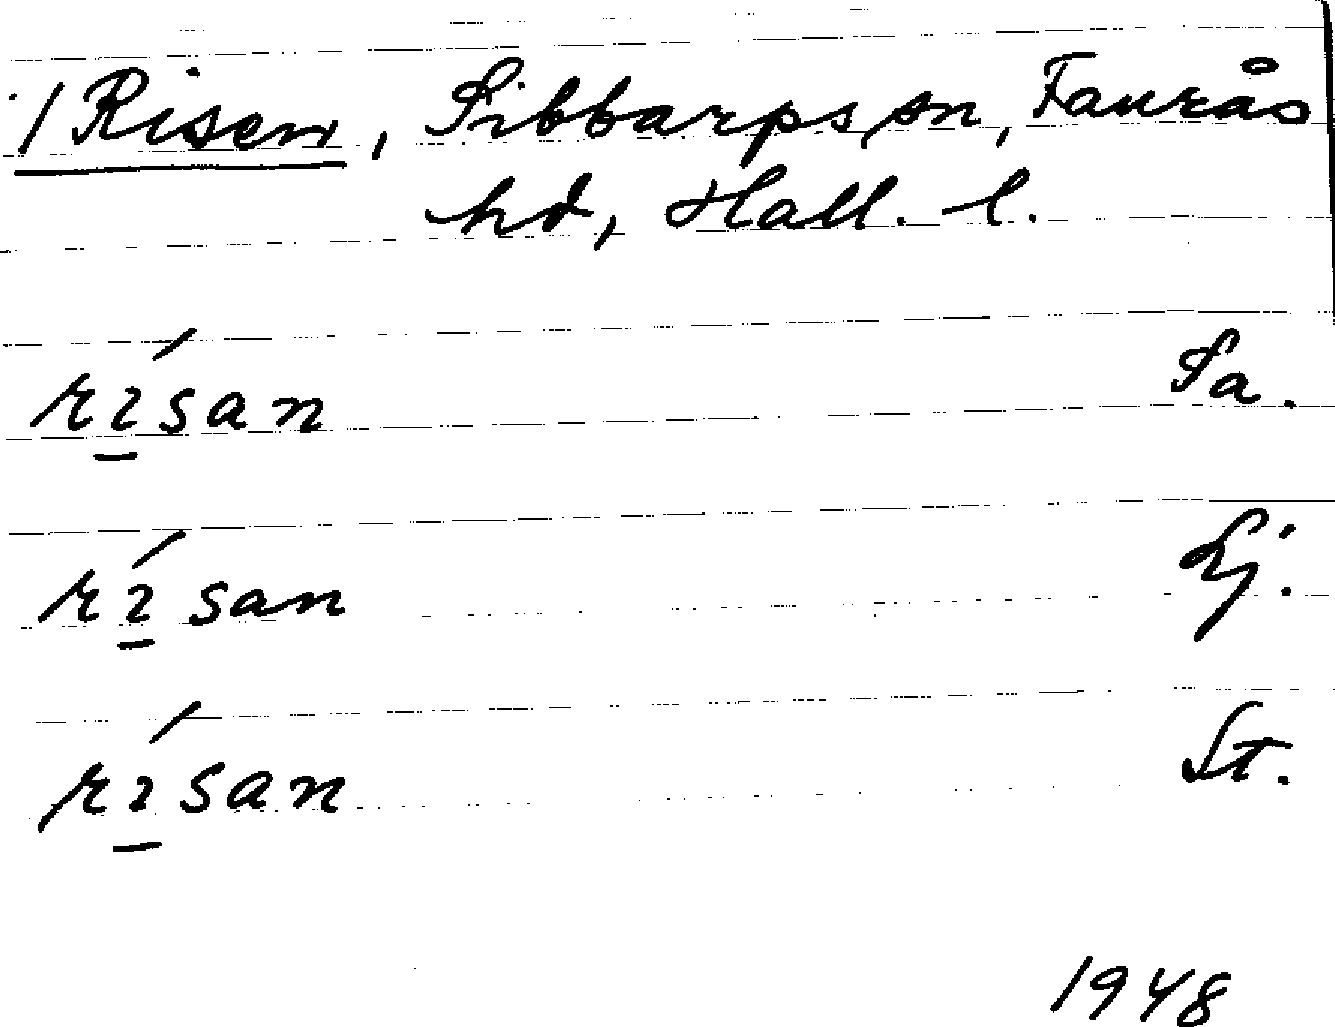 1 Risen, Sibbarps sn, Faurås
hd, Hall. l.
rísan Sa.
rísan Lj.
rísan St.
1948